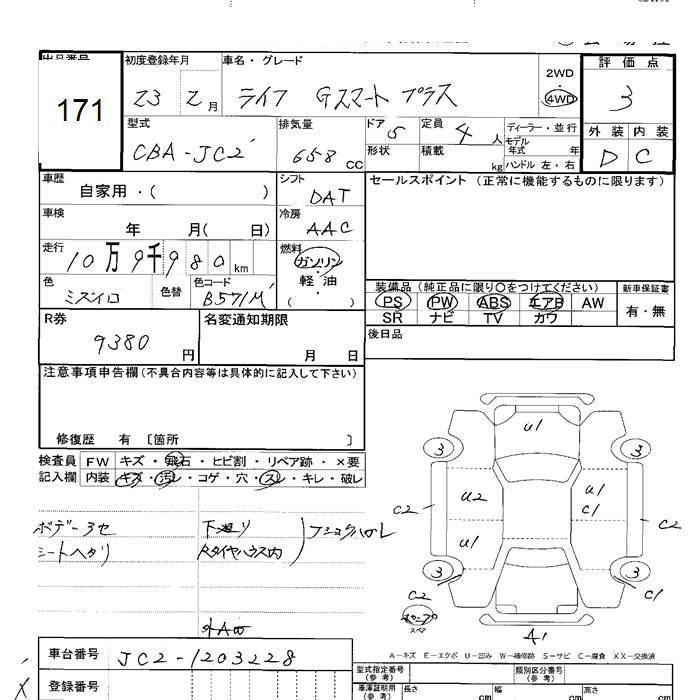 出品番号
171
初度登録年月
23 2月
車名・グレード
ライフ Gスマート プラス
2WD
・
4WD
評価点
3
外装 内装
D C
型式
CBA-JC2
排気量
658 CC
ドア 5
形状
定員 4 人
積載 kg
ディーラー・並行
モデル年式 年
ハンドル 左・右
車歴
自家用・( )
シフト
DAT
セールスポイント (正常に機能するものに限ります)
車検
年 月( 日)
冷房
AAC
走行
10万9千980 km
燃料
ガソリン
・
軽油
・
( )
色
ミズイロ
色替
色コード
B571M
装備品(純正品に限り○をつけてください)
PS PW ABS エアB AW
SR ナビ TV カワ
新車保証書
有・無
R券
9380 円
名変通知期限
月 日
後日品
注意事項申告欄(不具合内容等は具体的に記入して下さい)
修復歴 有 〔箇所 〕
検査員記入欄
FW キズ・飛石・ヒビ割・リペア跡・×要
内装 キズ・汚レ・コゲ・穴・スレ・キレ・破レ
ボデー3セ
シートヘタリ
下廻り
Rタイヤハウス内
外A
U1
3 3
C2 U2 U1 C1 C2
U1
3 3
C2 C1
スペア
A1
A-キズ E-エクボ U-凹み W-補修跡 S-サビ C-腐食 XX-交換済
車台番号
JC2-1203228
登録番号
型式指定番号(参考)
類別区分番号(参考)
車庫証明用(参考)
長さ cm
幅 cm
高さ cm